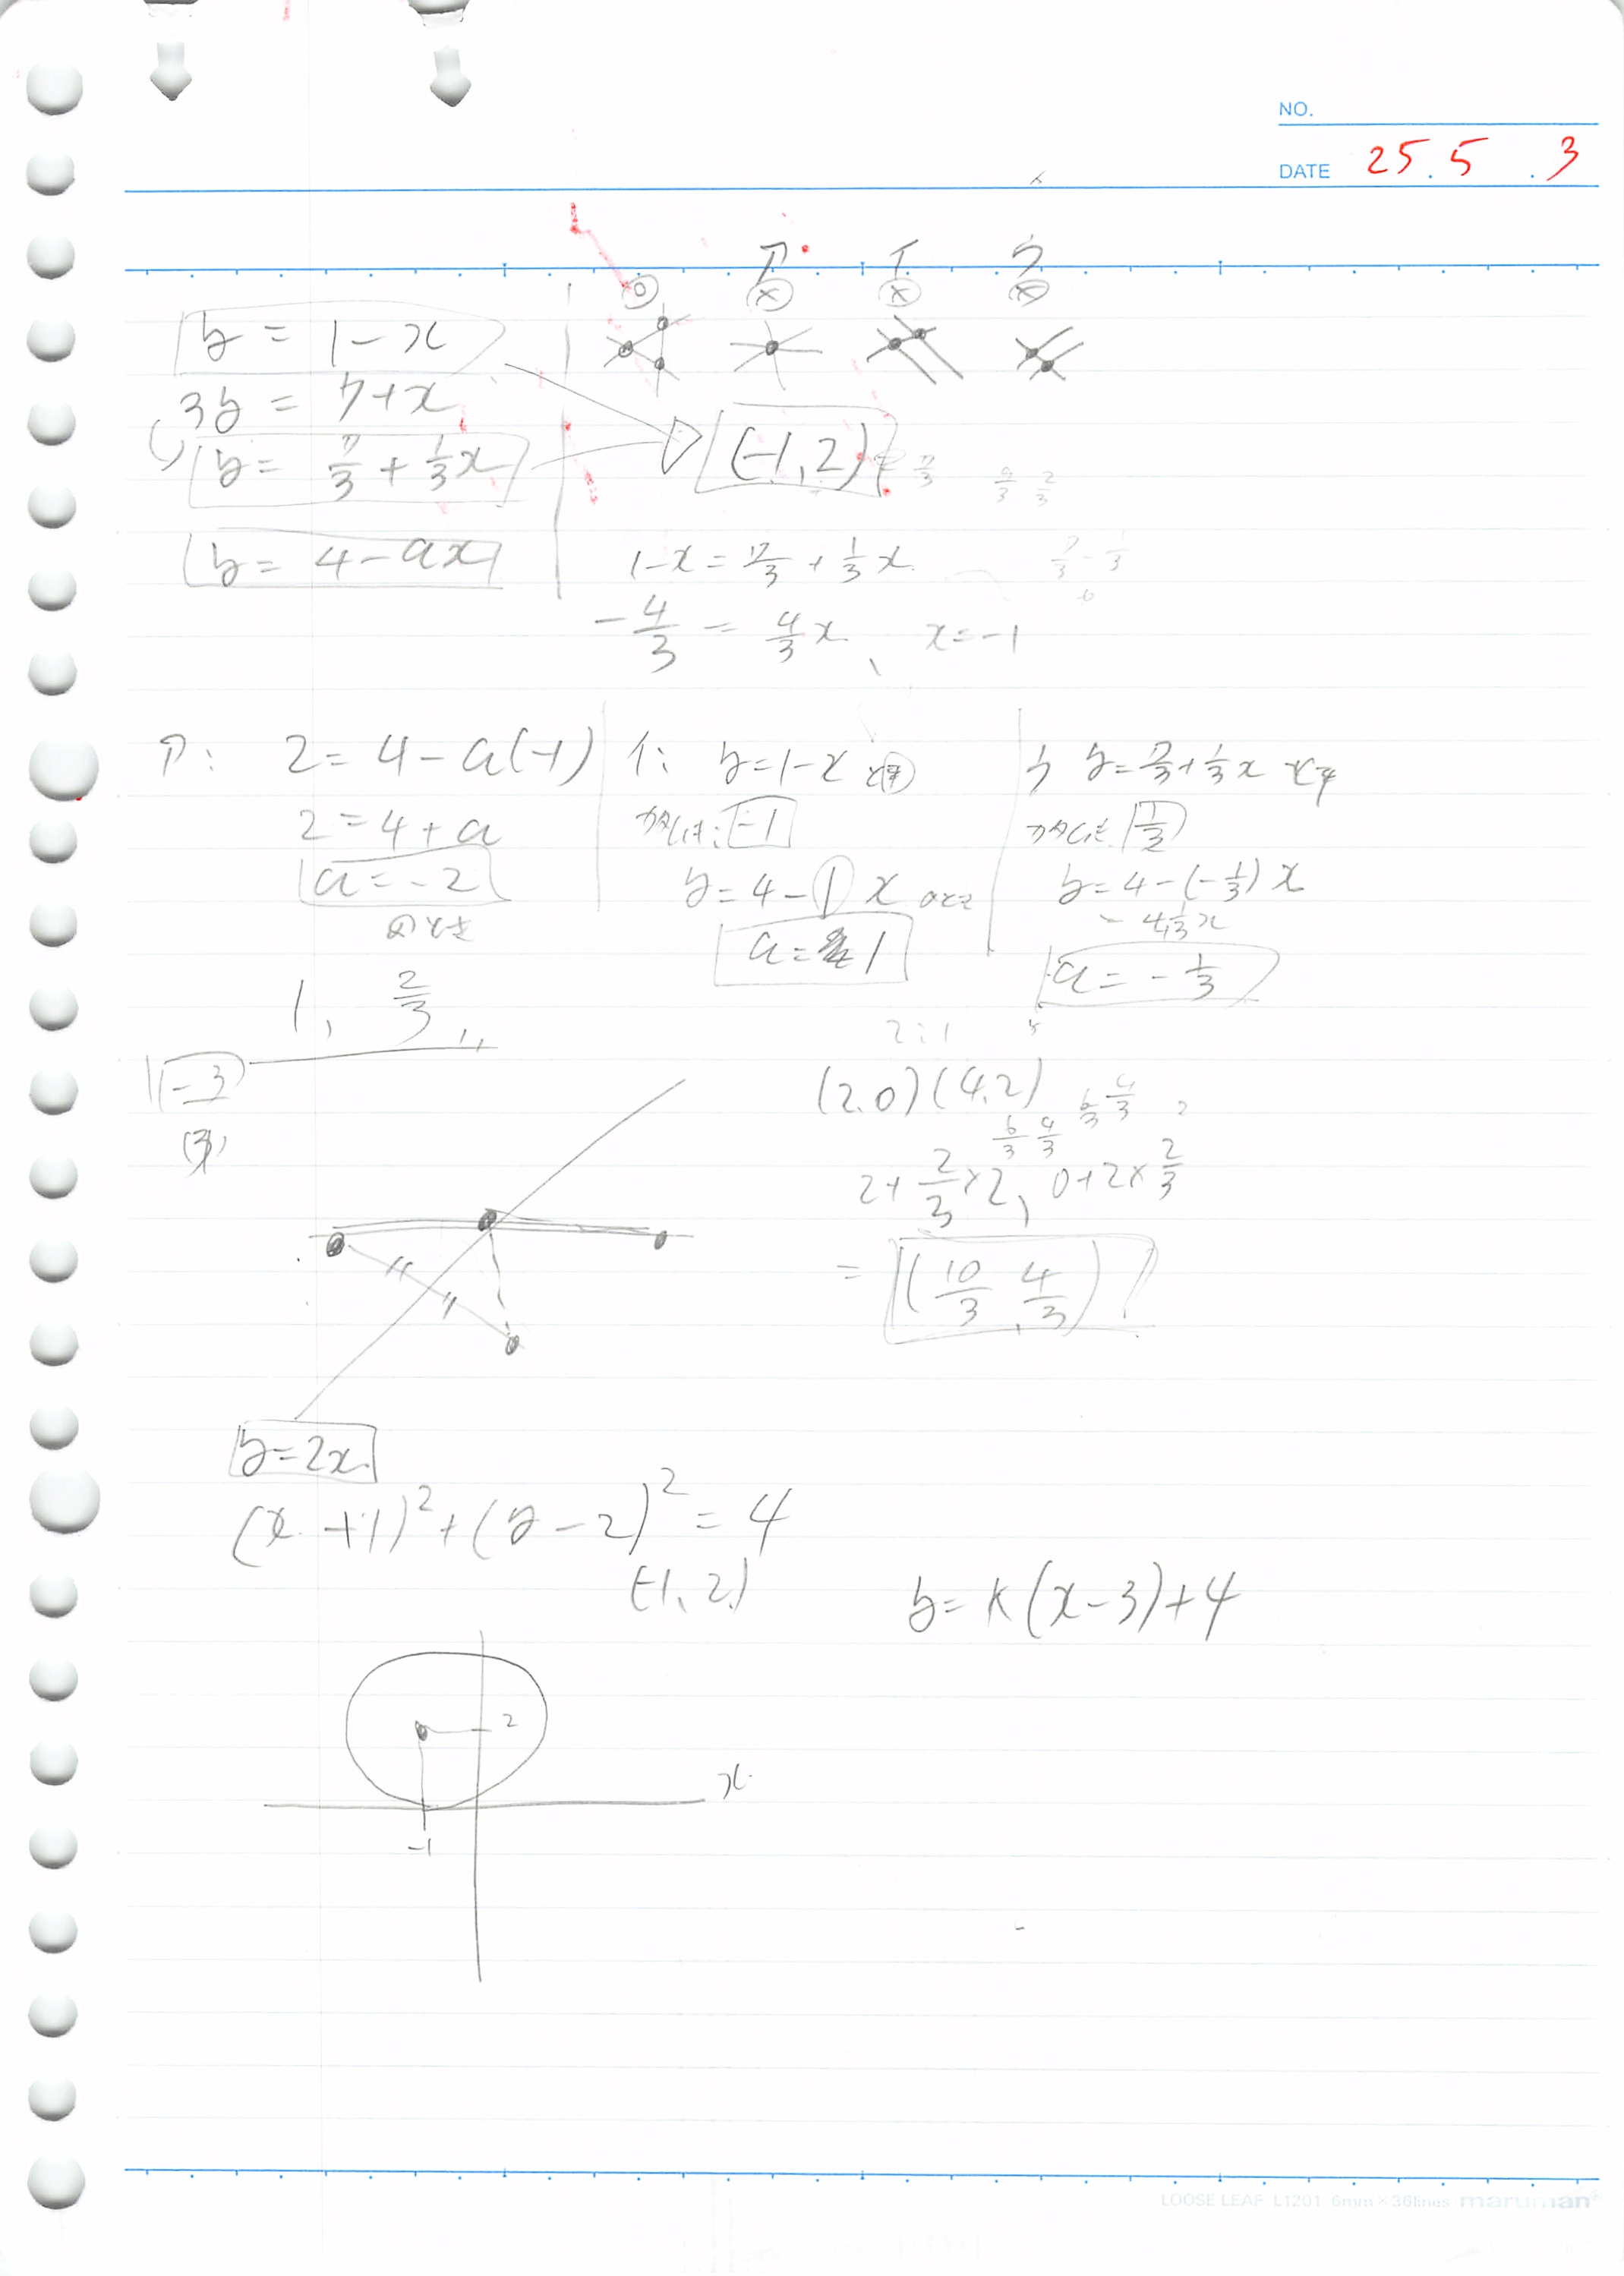 NO.
DATE 25.5.3
ア イ ウ
y = 1-x
3y = 7+x
y = 7/3 + 1/3x
(-1,2)
y = 4-ax
1-x = 7/3 + 1/3x
7/3 - 1/3
-4/3 = 4/3x、 x=-1
ア: 2=4-a(-1)
2=4+a
a=-2
のとき
イ: y=1-x
-1
y=4-1x
a=1
ウ y=7/3+1/3x
1/3
y=4-(-1/3)x
a=-1/3
1, 2/3,
1-3
2:1
(2,0)(4,2)
6/3 4/3 6/3 4/3
2+2/3×2, 0+2×2/3
= (10/3, 4/3)
y=2x
(x+1)²+(y-2)²=4
(-1,2)
y=k(x-3)+4
2
x
-1
LOOSE LEAF L1201 6mm×36lines maruman